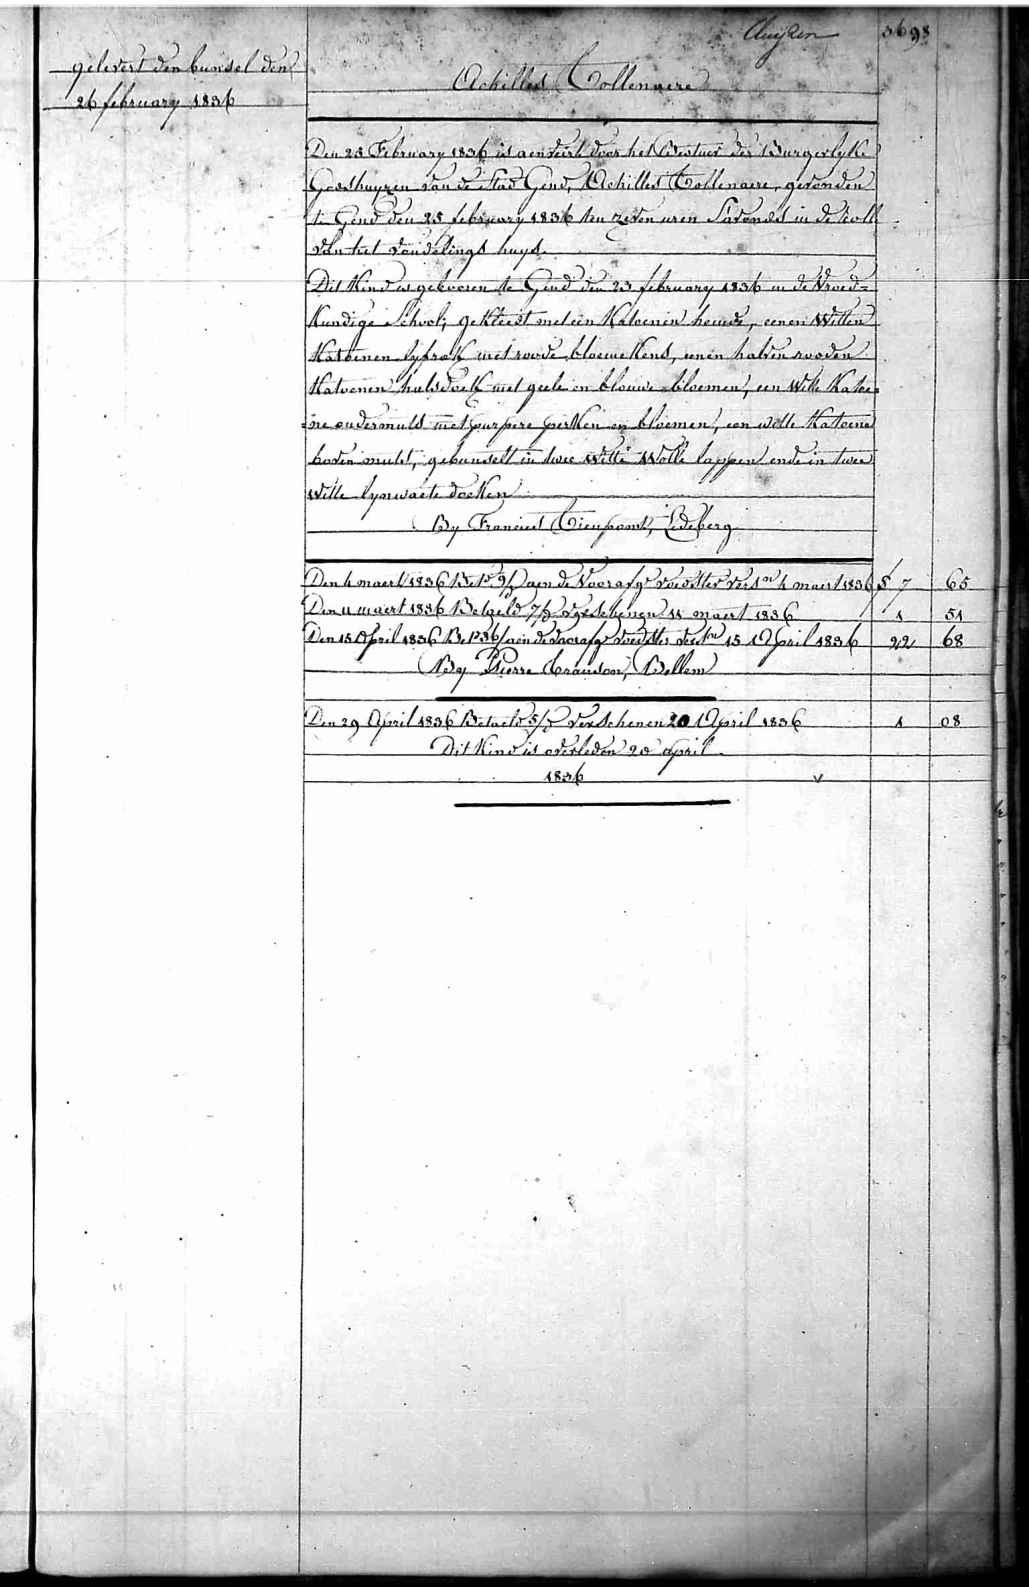 Cluyzen 3698
gelevert den bunsel den
26 february 1836
Achilles Tollenaere
Den 25 February 1836 is aenveirt door het Bestuer der Burgerlyke
Godshuyzen van de Stad Gend, Achilles Tollenaere, gevonden
te Gend den 25 february 1836 ten zeven uren s'avonds in de roll
van het vondelings huys.
Dit Kind is geboren te Gend den 23 february 1836 in de Vroed=
Kundige School, gekleest met een Katoenen heuve, eenen Witten
Katoenen lyfrok met roode bloemekens, eenen halven rooden
Katoenen halsdoek met geele en blouwe bloemen, een witte Katoe=
=ne ondermuts met purpere perken en bloemen, een witte Katoene
boven muts, gebunselt in twee witte Wolle lappen ende in twee
witte lynwaete doeken
By Francies Tieupont, Ledeberg
Den 4 maert 1836 aen de Voorafg voedster 4 maert 1836 f 7 65
Den 11 maert 1836 Betaeld 7/ verschenen 11 maert 1836 1 51
Den 15 April 1836 aen de voorafg voedster 15 April 1836 22 68
By Pierre Cranson, Bellem
Den 29 April 1836 Betaeld 5/ verschenen 20 April 1836 1 08
Dit Kind is overleden 20 april
1836